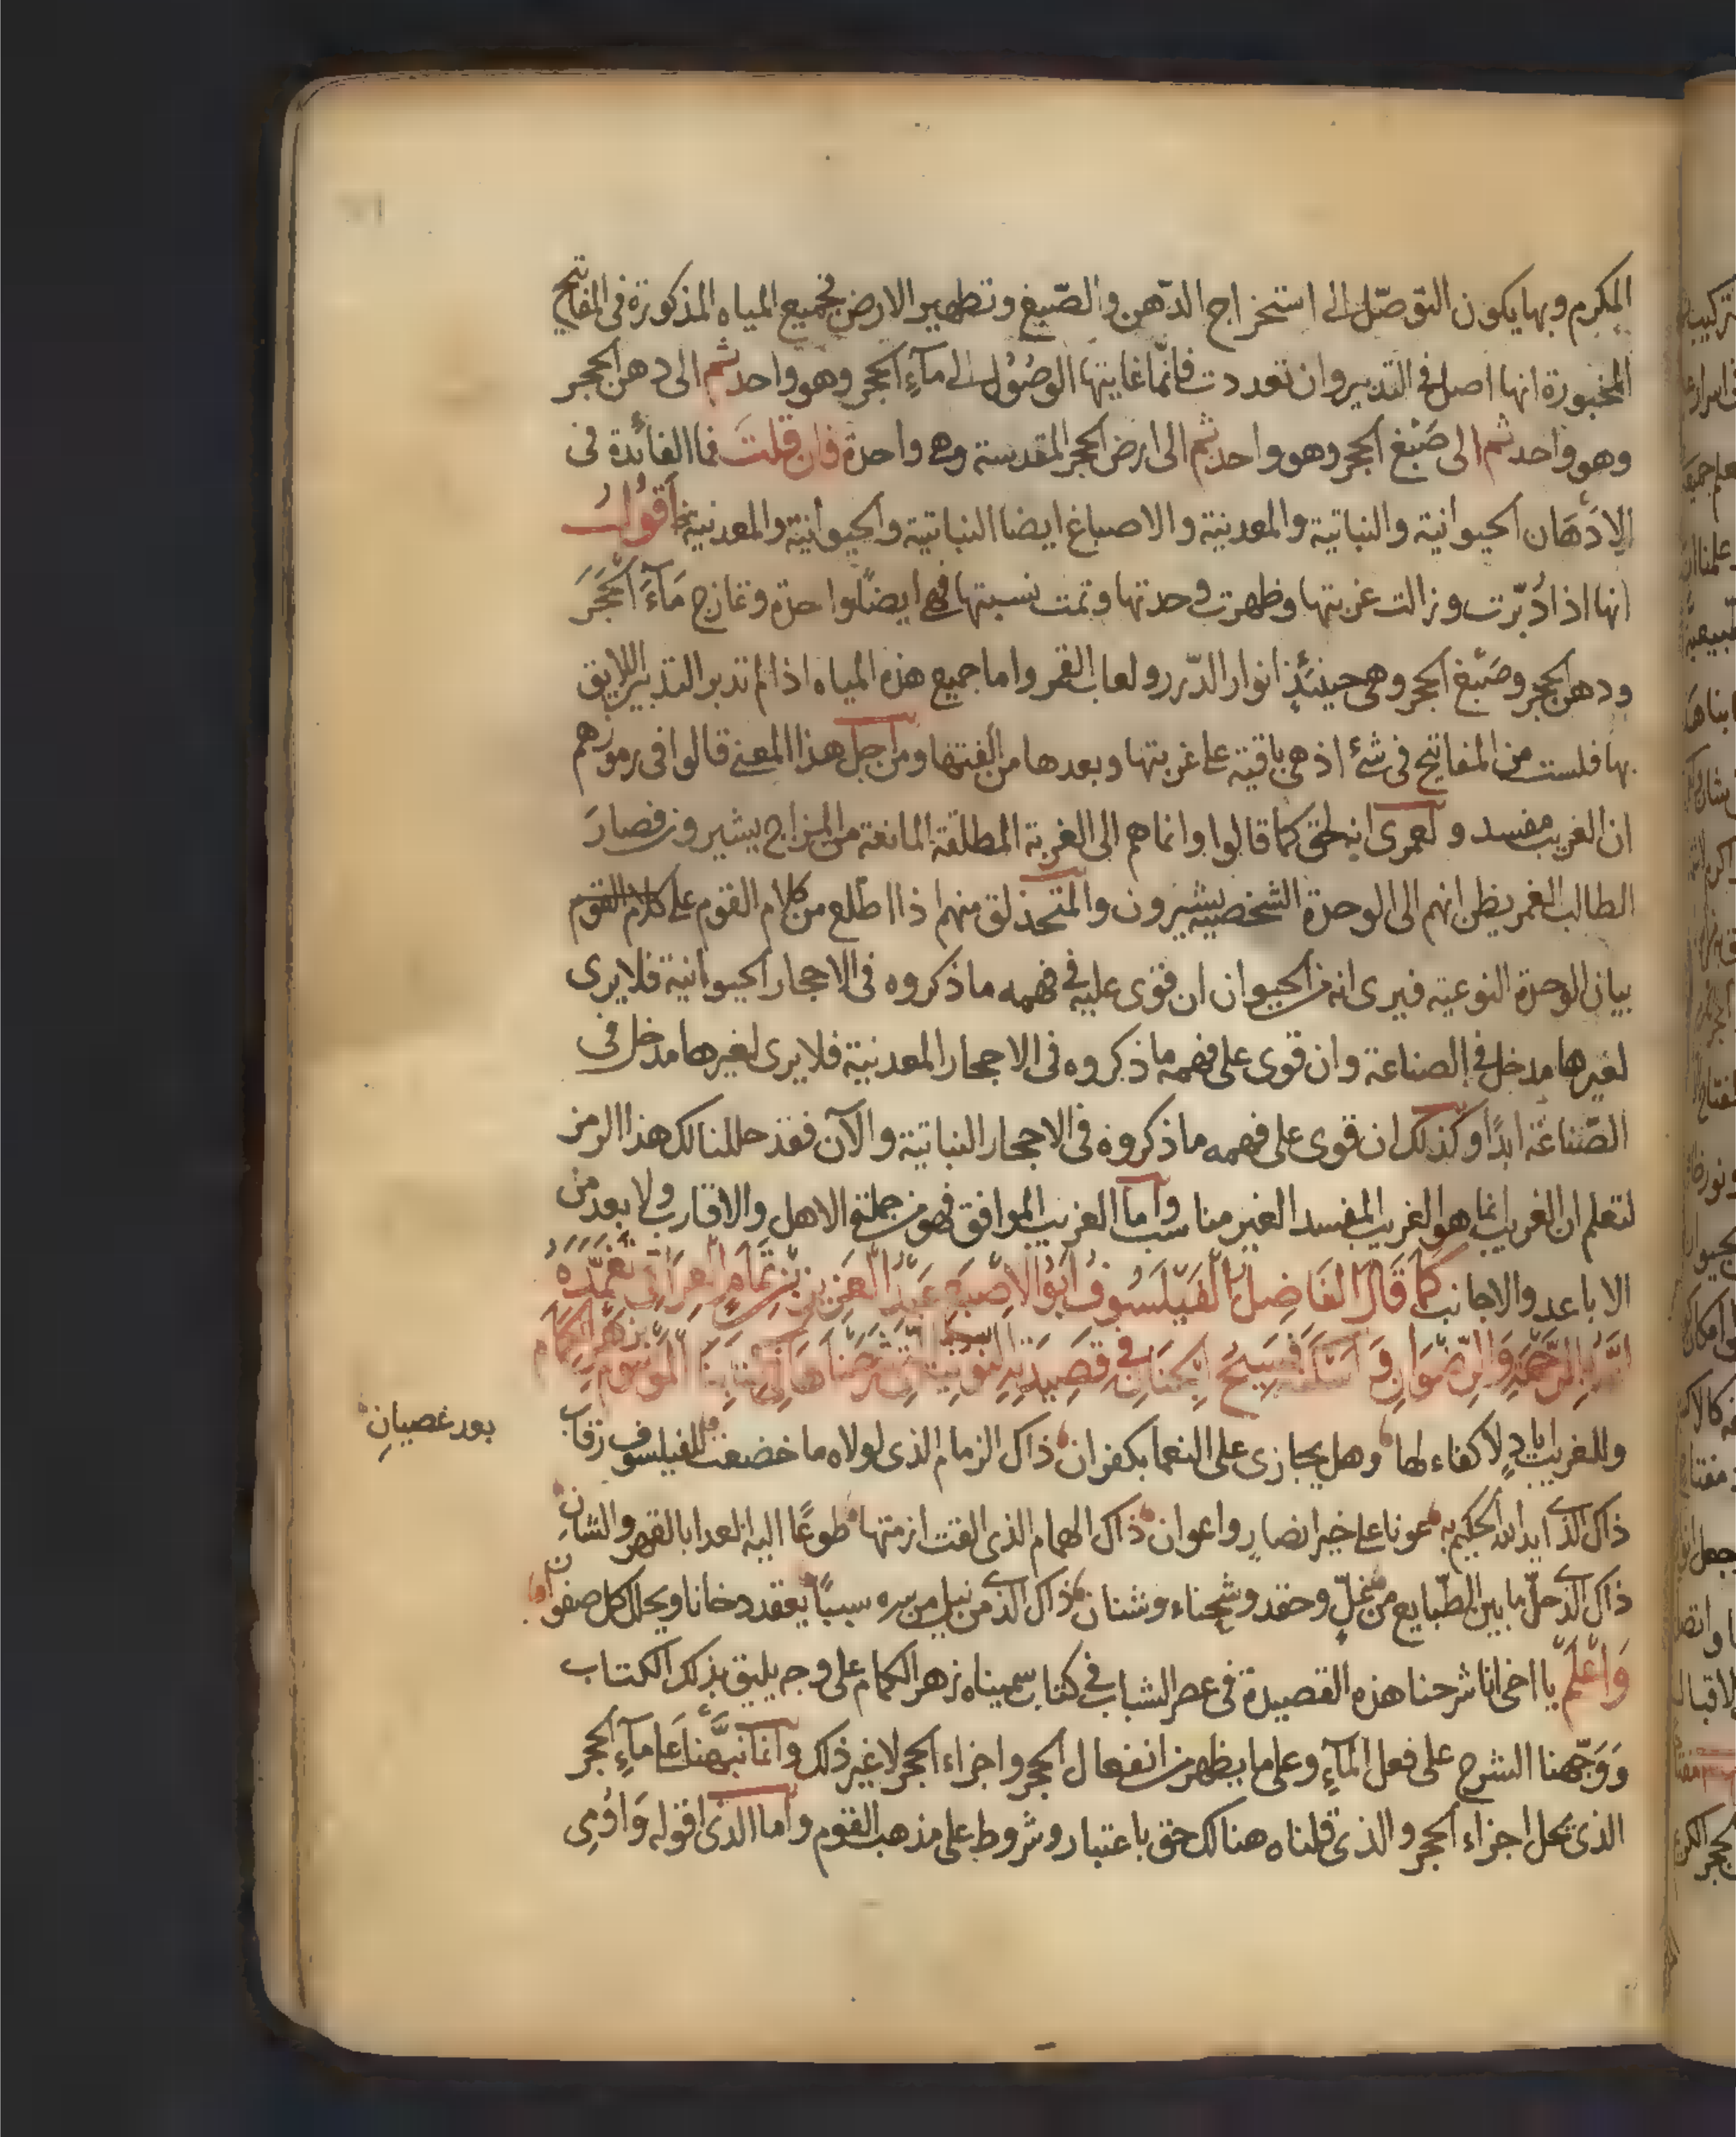 المكرم وبها يكون التوصّل الى استخراج الدّهن والصّبغ وتطهير الارض فجميع المياه المذكورة فى المفاتيح
المخبورة انها اصل فى التدبير وان تعددت فانّما غايتها الوصُول الى مآءِ الحجر وهو واحد ثم الى دهن الحجر
وهو واحد ثم الى صَبْغ الحجر وهو واحد ثم الى ارض الحجر المقدسة وهى واحدة فان قلتَ فما الفائدة فى
الادْهَان الحيوانية والنباتية والمعدنية والاصباغ ايضا النباتية والحيوانية والمعدنية أقول
انها اذا دُبّرت وزالت غربتها وظهرت وحدتها وتمت نسبتها فهى ايضًا واحدة وتمازج مَآءَ الحَجَر
ودهن الحجر وصَبْغ الحجر وهى حينئذٍ انوار الدّرر ولعاب القمر واما جميع هذه المياه اذا لم تدبر التدبير اللايق
بها فلست من المفاتيح فى شئ اذ هى باقية على غربتها وبعدها من الفتها ومن اجل هذا المعنى قالوا فى رموزهم
ان الغريب مفسد ولعمرى انه لحق كما قالوا وانما هم الى الغربة المطلقة المانعة من المزاج يشيرون فصارَ
الطالب الغمر يظن انهم الى الوحدة الشخصية يشيرون والمتحذلق منهم اذا اطّلع من كلام القوم على كلام القوم
بيان الوحدة النوعية فيرى انه من الحيوان ان قوى عليه فى فهمه ما ذكروه فى الاحجار الحيوانية فلا يرى
لغيرها مدخل فى الصناعة وان قوى على فهمه ما ذكروه فى الاحجار المعدنية فلا يرى لغيرها مدخل فى
الصّناعَة ابدًا وكذلك ان قوى على فهمه ما ذكروه فى الاحجار النباتية والآن فقد حللنا لك هذا الرمز
لتعلم ان الغريب انما هو الغريب المفسد الغير مناسب وأما الغريب الموافق فهو من جملة الاهل والاقارب ولا بعد من
الاباعد والاجانب كما قَالَ الفَاضِل الفَيْلَسُوفُ ابُو الاصْبَع عَبْدُ العَزِيز بْنِ تَمَامِ العِرَاقِى تَغَمَّدَهُ
اللهُ بِالرَّحْمَةِ وَالرِّضْوَانِ وَاَسْكَنَهُ فَسِيحُ الْجِنَانِ فى قَصِيدَتِهِ النُونِيَّة الَّتى شَرَحْنَاهَا فى كِتَابِنَا المَوْسُوم بِزَهْرِ الكِمَام
وللغريب ايادٍ لا كفاء لها وهل يجازى على النعما بكفران ذاك الزمام الذى لولاه ما خضعت للفيلسوف رقاب
بعد غصيانِ
ذاك الذى ايد الله الحكيم به عونا على خير انصارٍ واعوان ذاك الهمام الذى القت ازمتها طوعًا اليه العدا بالقهر والشانِ
ذاك الذى حلّ ما بين الطّبايع من غلٍّ وحقد وشحناء وشنان ذاك الذى من نيل من سره سببًا يعقد دخانا ويحلل كل صفوانِ
وَاعْلَمْ يا اخى انا شرحنا هذه القصيدة فى عصر الشباب فى كتاب سميناه زهر الكمام على وجه يليق بذلك الكتاب
وَوَجّهنا الشرح على فعل المآءِ وعلى ما يظهر من انفعال الحجر واجزاء الحجر لا غير ذلك وانما نبّهنا على مآءِ الحجر
الذى يحل اجزاء الحجر والذى قلناه هنالك حق باعتبار وشروط على مذهب القوم وأما الذى اقوله وَاوُمِى